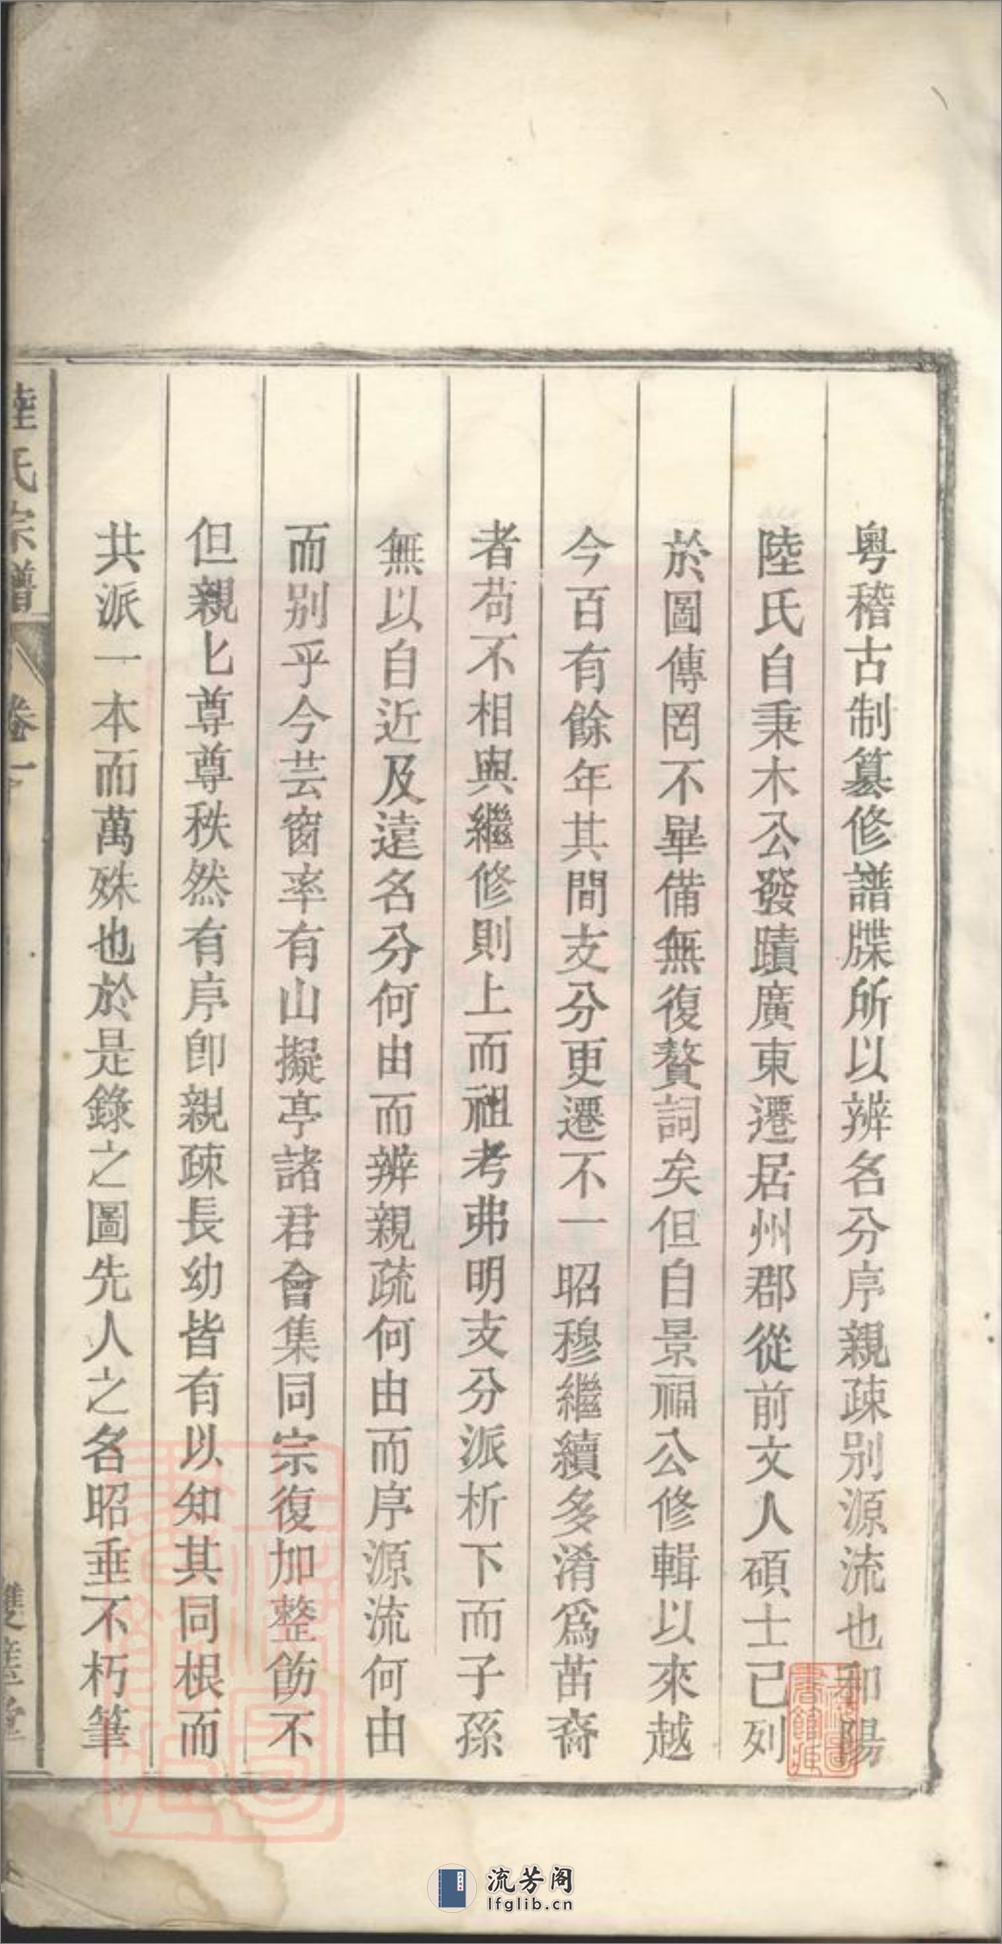 粵稽古制纂修譜牒所以辨名分序親疎別源流也和陽
陸氏自秉木公發蹟廣東遷居州郡從前文人碩士已列
於圖傳罔不畢備無復贅詞矣但自景福公修輯以來越
今百有餘年其間支分更遷不一昭穆繼續多淆爲苗裔
者苟不相與繼修則上而祖考弗明支分派析下而子孫
無以自近及遠名分何由而辨親疏何由而序源流何由
而別乎今芸窗率有山擬亭諸君會集同宗復加整飭不
但親匕尊尊秩然有序卽親疎長幼皆有以知其同根而
共派一本而萬殊也於是錄之圖先人之名昭垂不朽筆
陸氏宗譜
卷一
雙璧堂
流芳阁
lfglib.cn